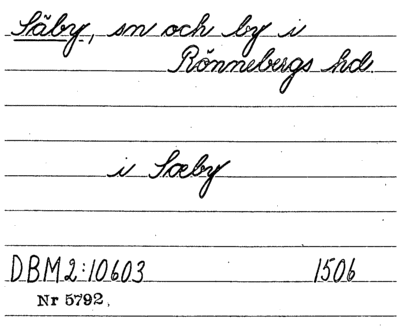 Säby, sn och by i
Rönnebergs hd.
i Sæby
DBM2:10603 1506
Nr 5792.